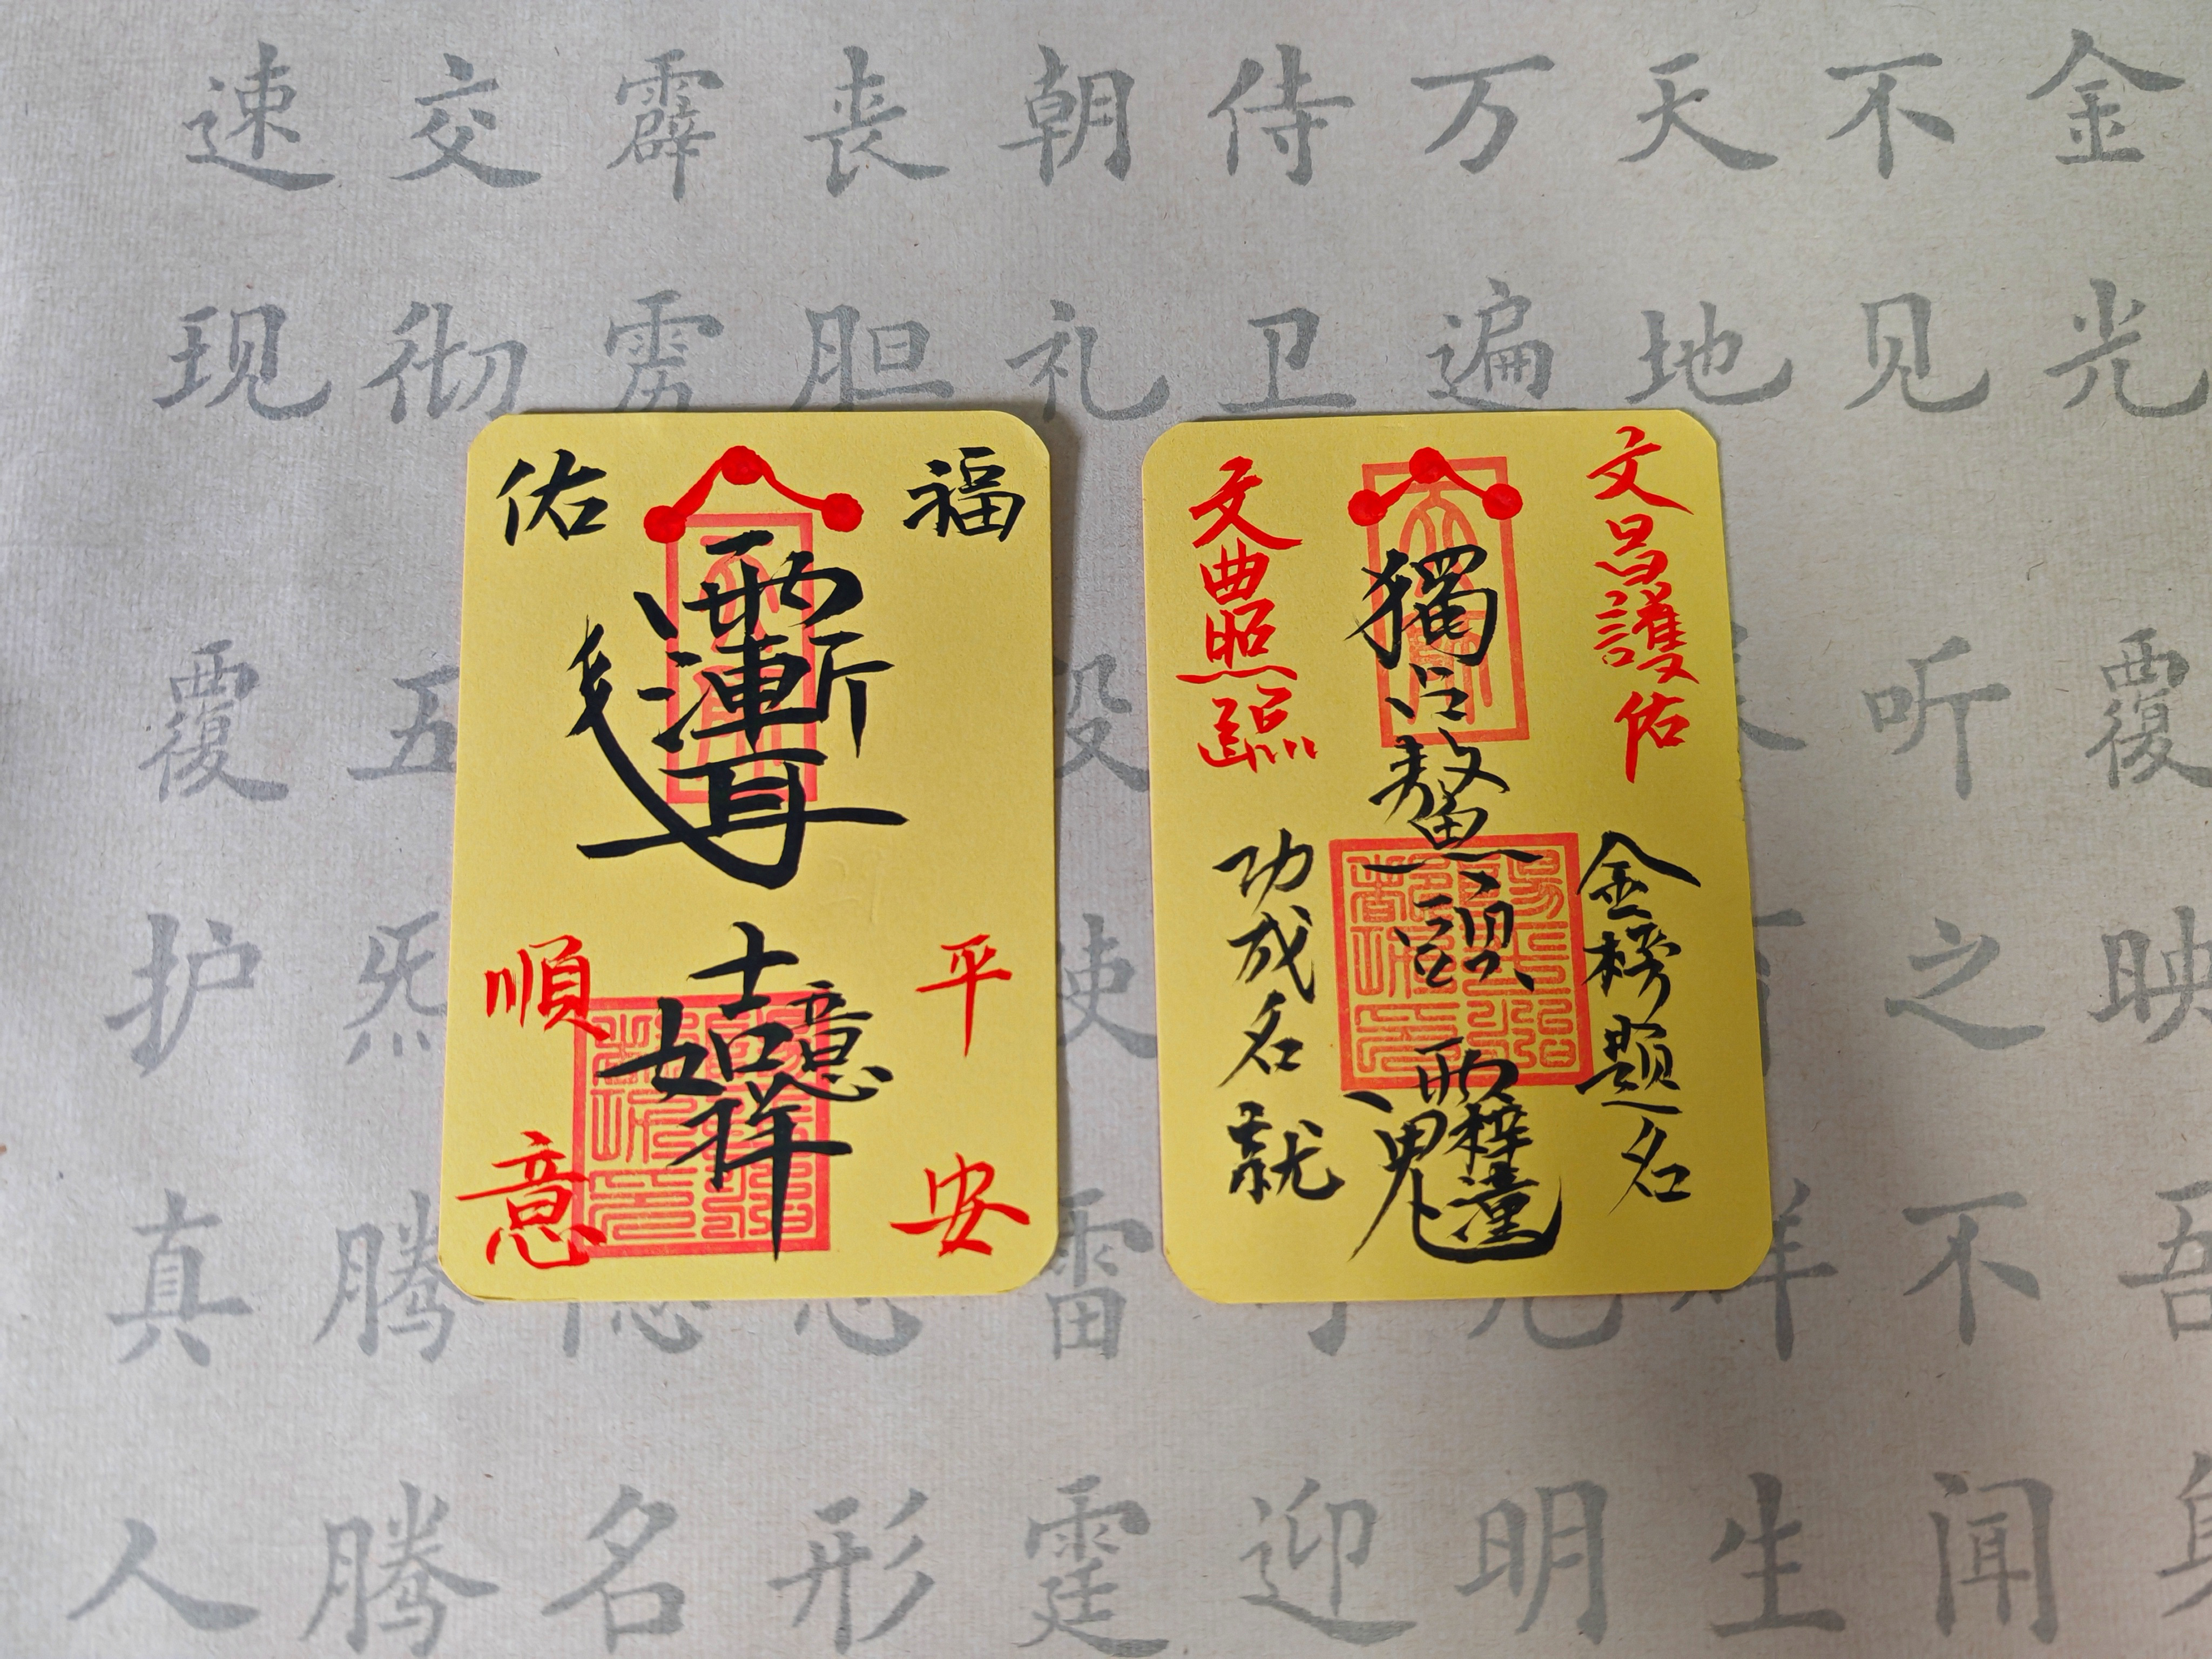 福佑
平安
順意
吉祥
如意
文昌護佑
文曲照臨
獨占鰲頭
金榜題名
功成名就
金光
不见
天地
万遍
侍卫
朝礼
丧胆
霹雳
交彻
速现
覆映
听之
吾身
不闻
生
明
迎
雷霆
形
名
五炁腾腾
覆护真人